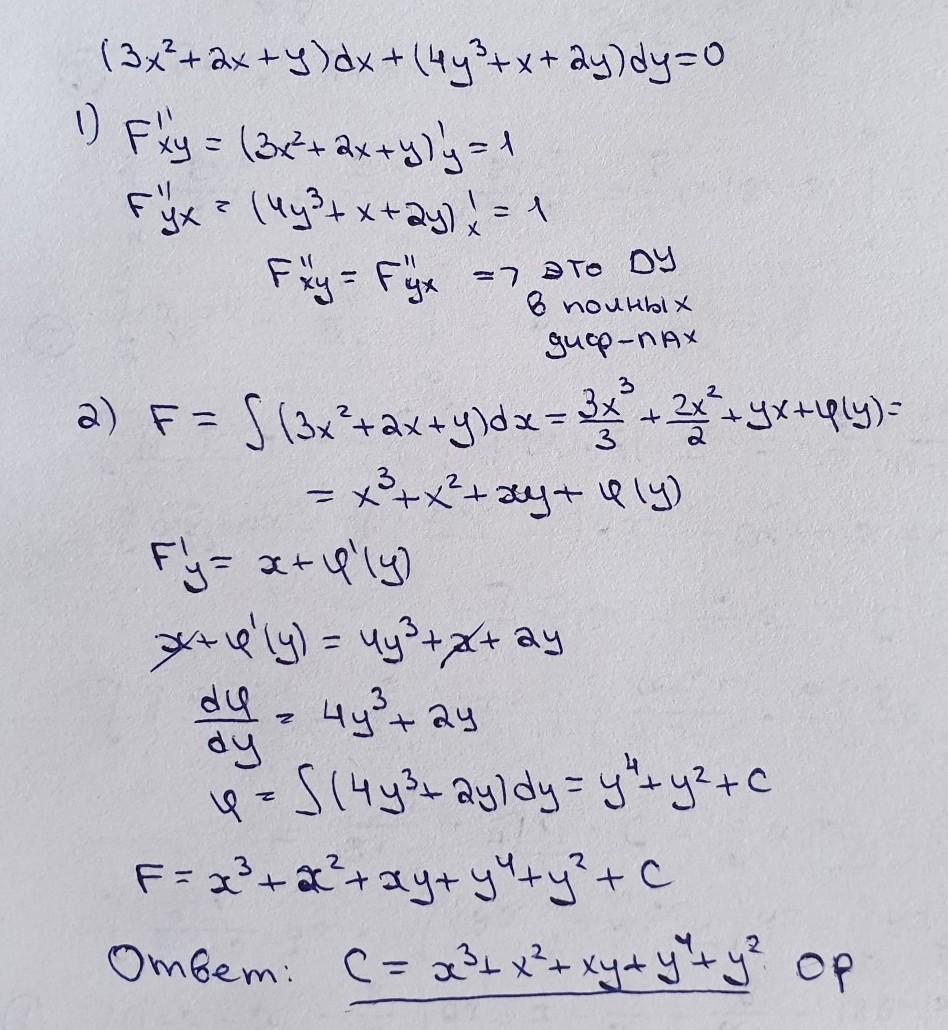 (3x²+2x+y)dx+(4y³+x+2y)dy=0
1) F''xy = (3x²+2x+y)'y = 1
F''yx = (4y³+x+2y)'x = 1
F''xy = F''yx => это ДУ
в полных
диф-лах
2) F = ∫(3x²+2x+y)dx = 3x³/3 + 2x²/2 + yx+φ(y)=
= x³+x²+xy+φ(y)
F'y = x+φ'(y)
x+φ'(y) = 4y³+x+2y
dφ/dy = 4y³+2y
φ = ∫(4y³+2y)dy = y⁴+y²+C
F = x³+x²+xy+y⁴+y²+C
Ответ: C = x³+x²+xy+y⁴+y² ОР